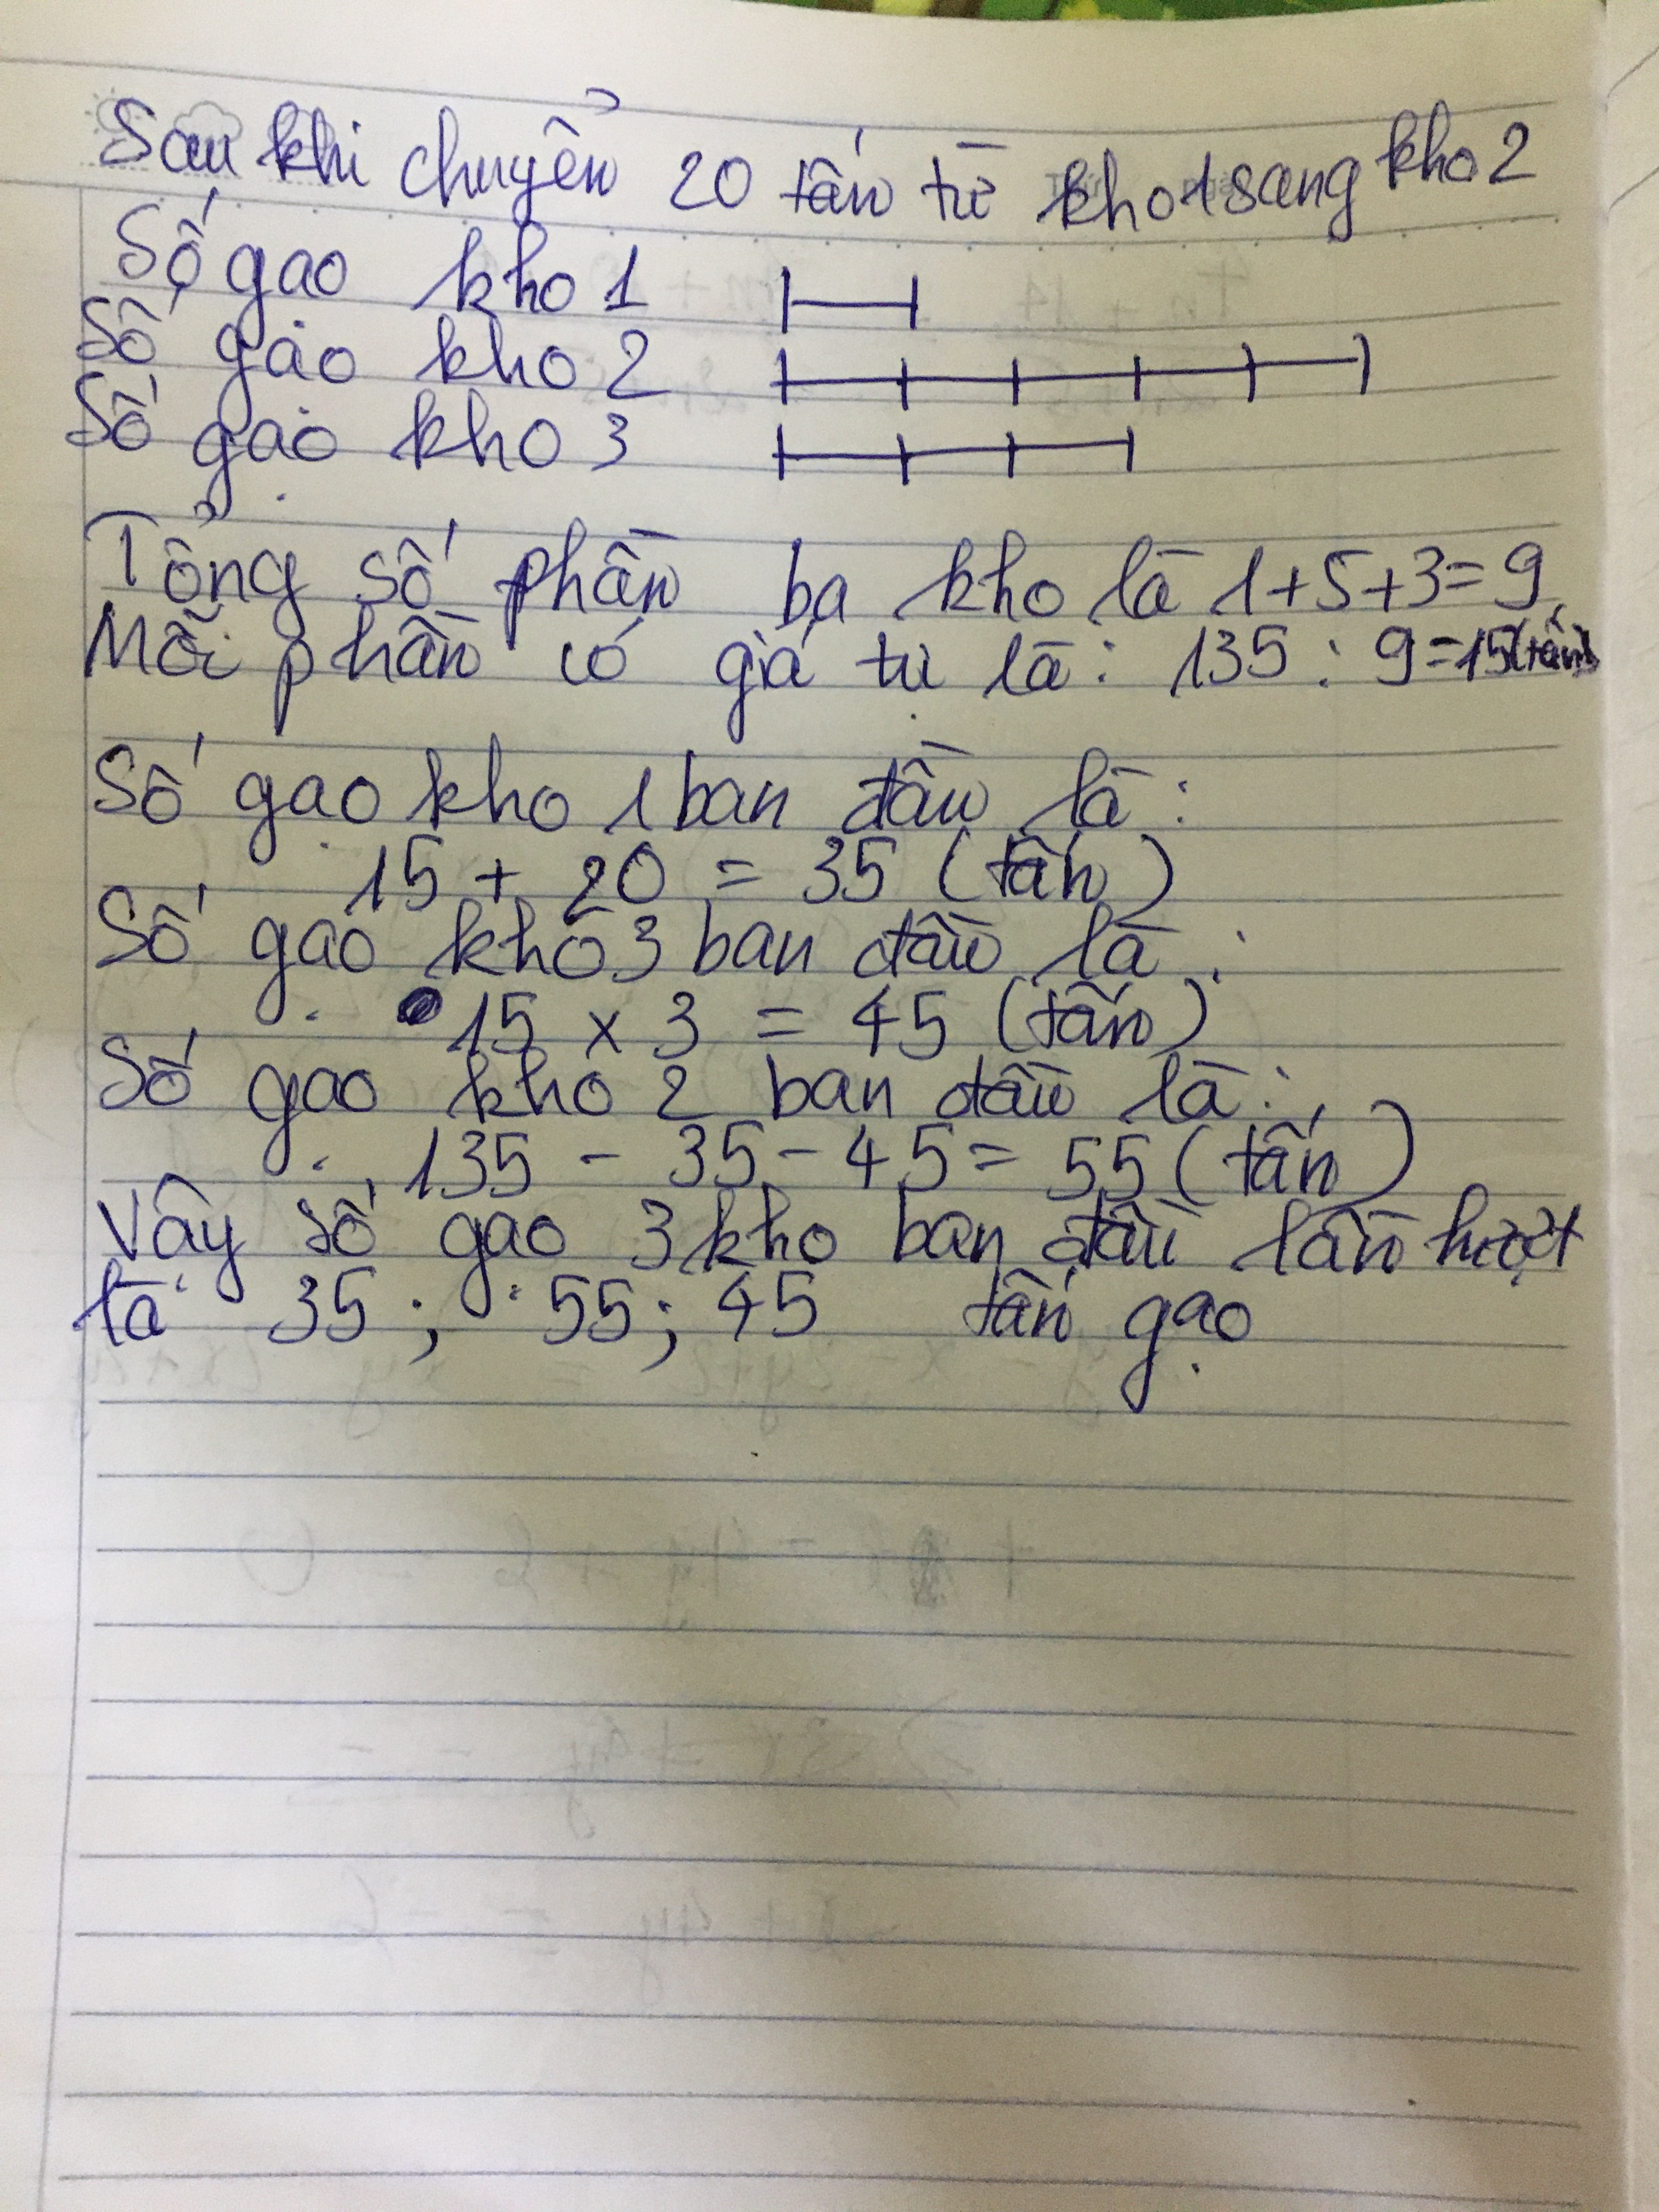 Sau khi chuyển 20 tấn từ kho 1 sang kho 2
Số gạo kho 1
Số gạo kho 2
Số gạo kho 3
Tổng số phần ba kho là 1+5+3=9
Mỗi phần có giá tị là: 135 : 9=15(tấn)
Số gạo kho 1 ban đầu là:
15 + 20 = 35 (tấn)
Số gạo kho 3 ban đầu là:
15 x 3 = 45 (tấn)
Số gạo kho 2 ban đầu là:
135 - 35 - 45 = 55 (tấn)
Vậy số gạo 3 kho ban đầu lần lượt
là 35 ; 55 ; 45 tấn gạo